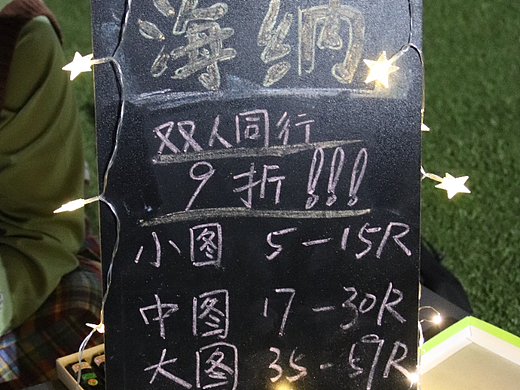 海纳
双人同行
9折!!!
小图 5-15R
中图 17-30R
大图 35-59R